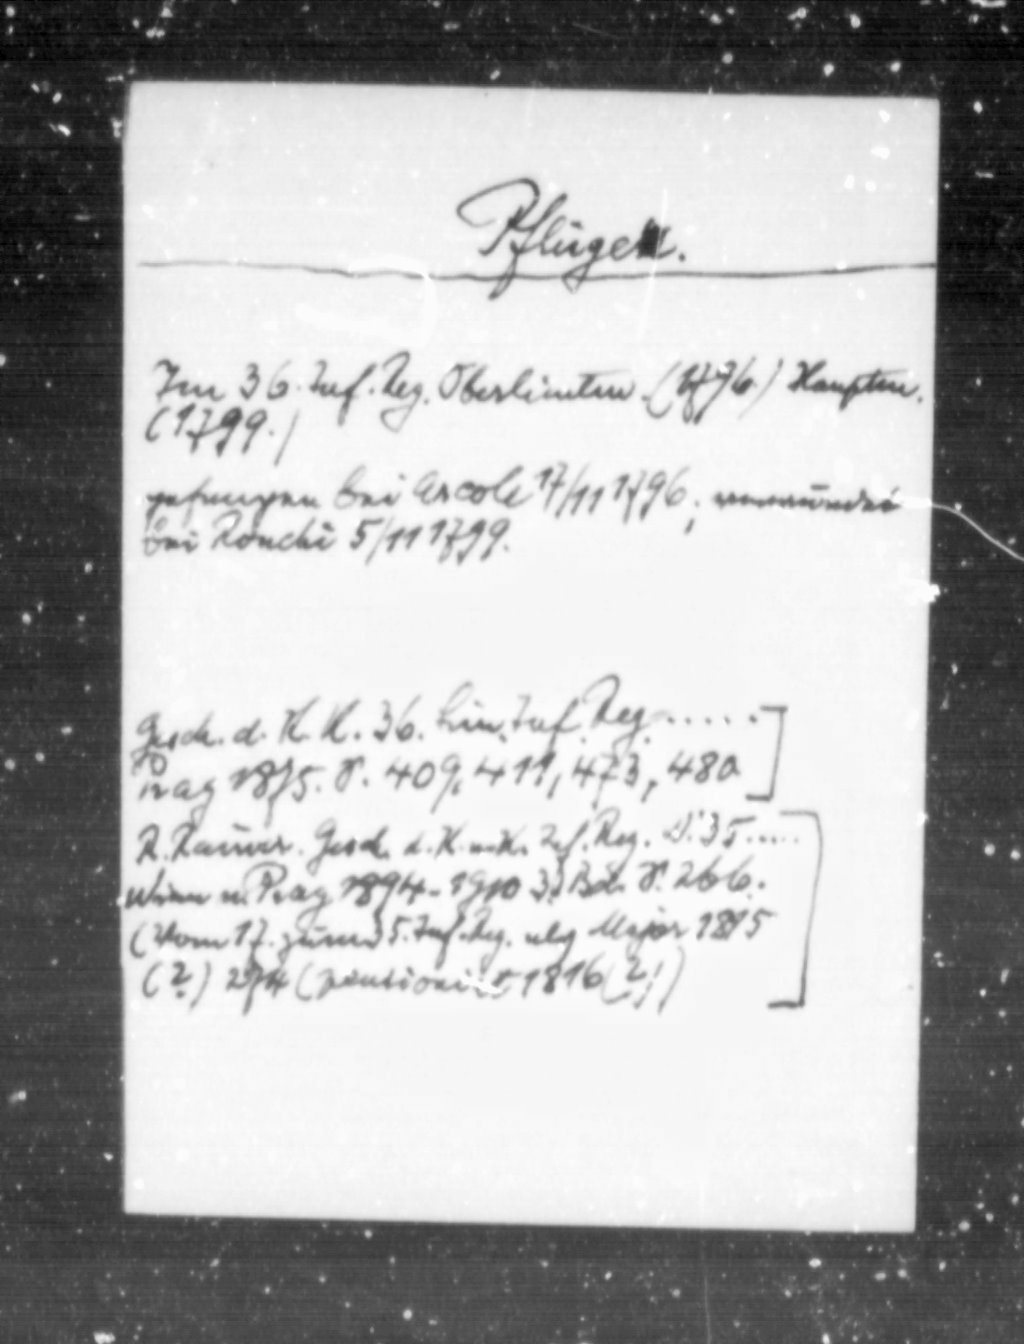 Pflüger.
Im 36. Inf. Reg. Oberlieutn. (1796.) Hauptm.
(1799.)
gefangen bei Arcole 17/11 1796; verwundet
bei Ronchi 5/11 1799.
Gesch. d. K. K. 36. Lin. Inf. Reg. .....]
Prag 1875. S. 409, 411, 473, 480
Gesch. d. K. u. K. Inf. Reg. N: 35 .....
Wien u. Prag 1894-1910 3. Bd. S. 266.
(Vom 17. zum 35. Inf. Reg. als Major 1815
(?) 274 (pensionirt 1816 (?))